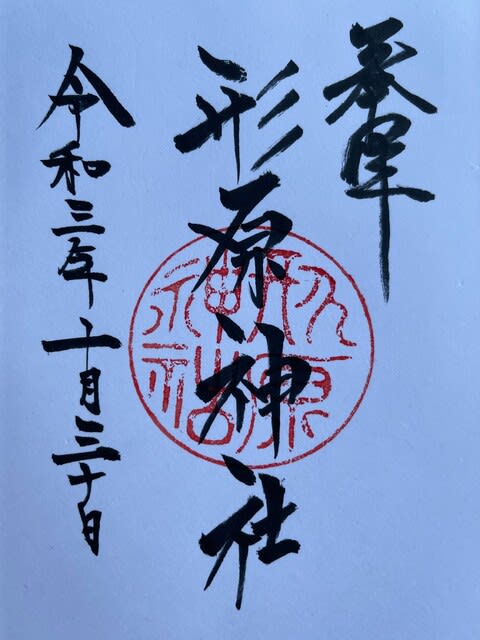 奉拝
形原神社
令和三年十月三十日